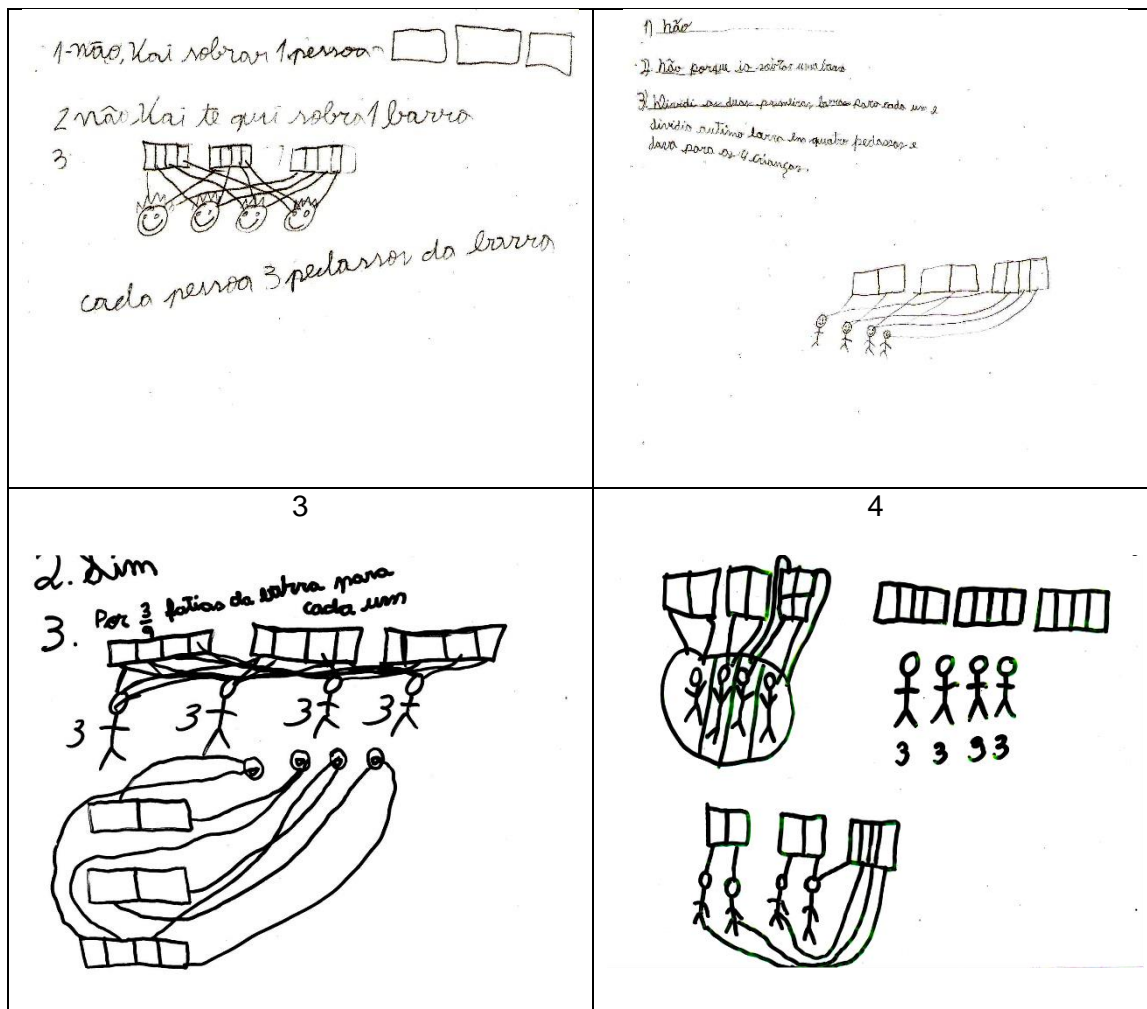 1-não, Vai sobrar 1 pessoa
2 não Vai te qui sobra 1 barra
3
cada pessoa 3 pedassos da barra
1) não
2) não porque ia sobrar uma barra
3) Dividi as duas primeiras barras para cada um e
dividia autima barra em quatro pedassos e
dava para as 4 crianças.
3
2. Sim
3. Por 3/9 fatias da barra para
cada um
3 3 3 3
4
3 3 3 3